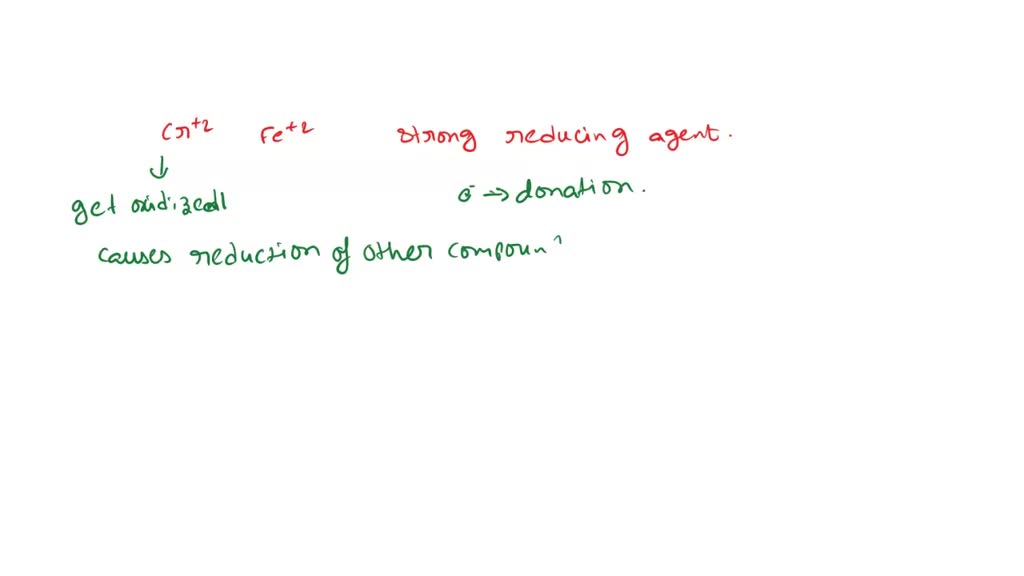 Cr⁺² Fe⁺² strong reducing agent.
get oxidized e⁻ → donation.
causes reduction of other compoun